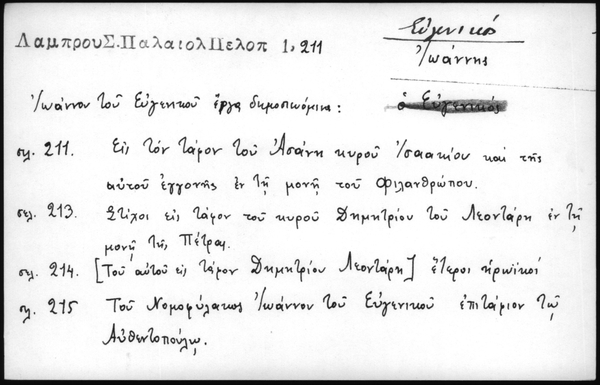 Εὐγενικός
Λαμπρου Σ. Παλαιολ Πελοπ 1, 211
Ἰωάννης
Ἰωάννου τοῦ Εὐγενικοῦ ἔργα δημοσιευόμενα: ὁ Εὐγενικός
σελ. 211. Εἰς τὸν τάφον τοῦ Ἀσάνη κυροῦ Ἰσαακίου καὶ τῆς
αὐτοῦ ἐγγονῆς ἐν τῇ μονῇ τοῦ Φιλανθρώπου.
σελ. 213. Στίχοι εἰς τάφον τοῦ κυροῦ Δημητρίου τοῦ Λεοντάρη ἐν τῇ
μονῇ τῆς Πέτρας.
σελ. 214. [Τοῦ αὐτοῦ εἰς τάφον Δημητρίου Λεοντάρη] ἕτεροι ἡρωϊκοί
σελ. 215 Τοῦ Νομοφύλακος Ἰωάννου τοῦ Εὐγενικοῦ ἐπιτάφιον τῷ
Αὐθεντοπούλῳ.